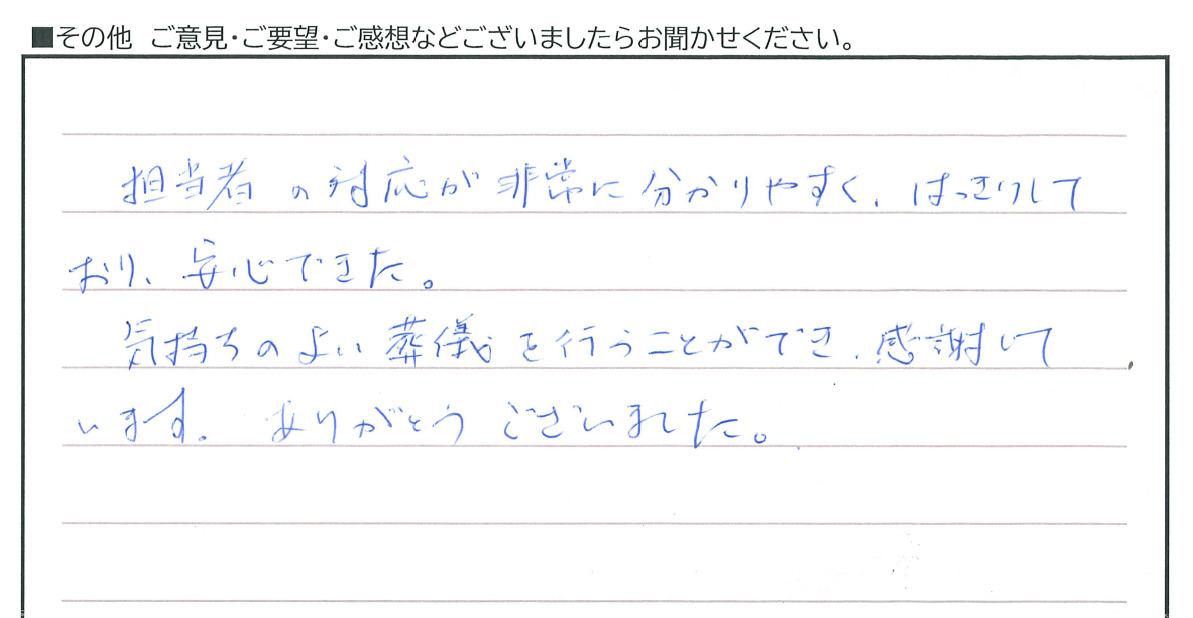 ■その他 ご意見・ご要望・ご感想などございましたらお聞かせください。
担当者の対応が非常に分かりやすく、はっきりして
おり、安心できた。
気持ちのよい葬儀を行うことができ、感謝して
います。ありがとうございました。